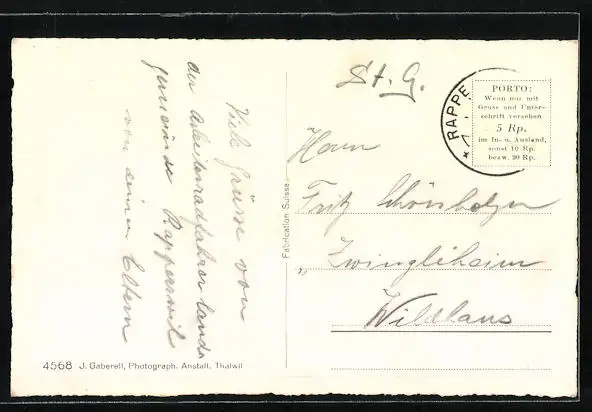 Viele Grüsse von
der Arbeiterradfahrer lands
gemeinde Rapperswil
von deinen Eltern
St. G.
RAPPE
PORTO:
Wenn nur mit
Gruss und Unter-
schrift versehen
5 Rp.
im In- u. Ausland,
sonst 10 Rp.
bezw. 20 Rp.
Herrn
Fritz Schönholzer
„Zwingliheim
Wildhaus
Fabrication Suisse
4568 J. Gaberell, Photograph. Anstalt, Thalwil